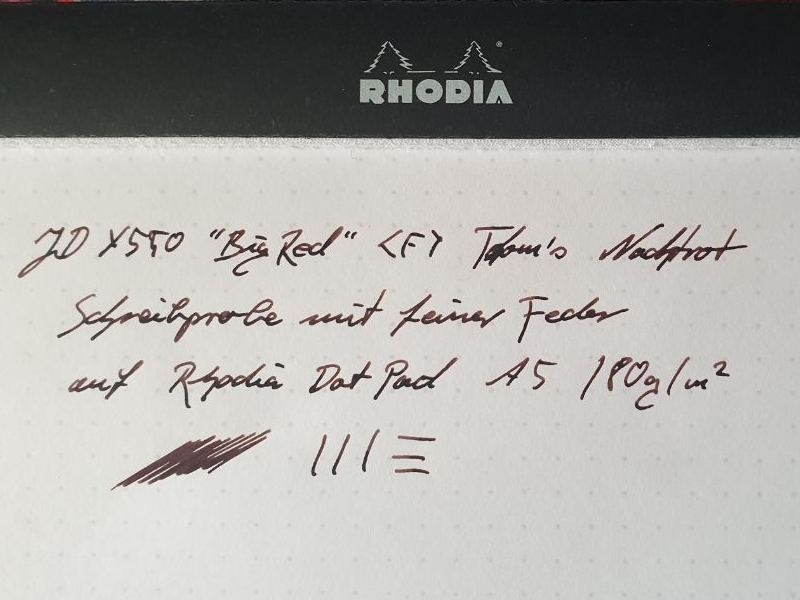 RHODIA
JD X550 "Big Red" <F> Tom's Nachtrot
Schreibprobe mit feiner Feder
auf Rhodia Dot Pad A5 /80g/m²